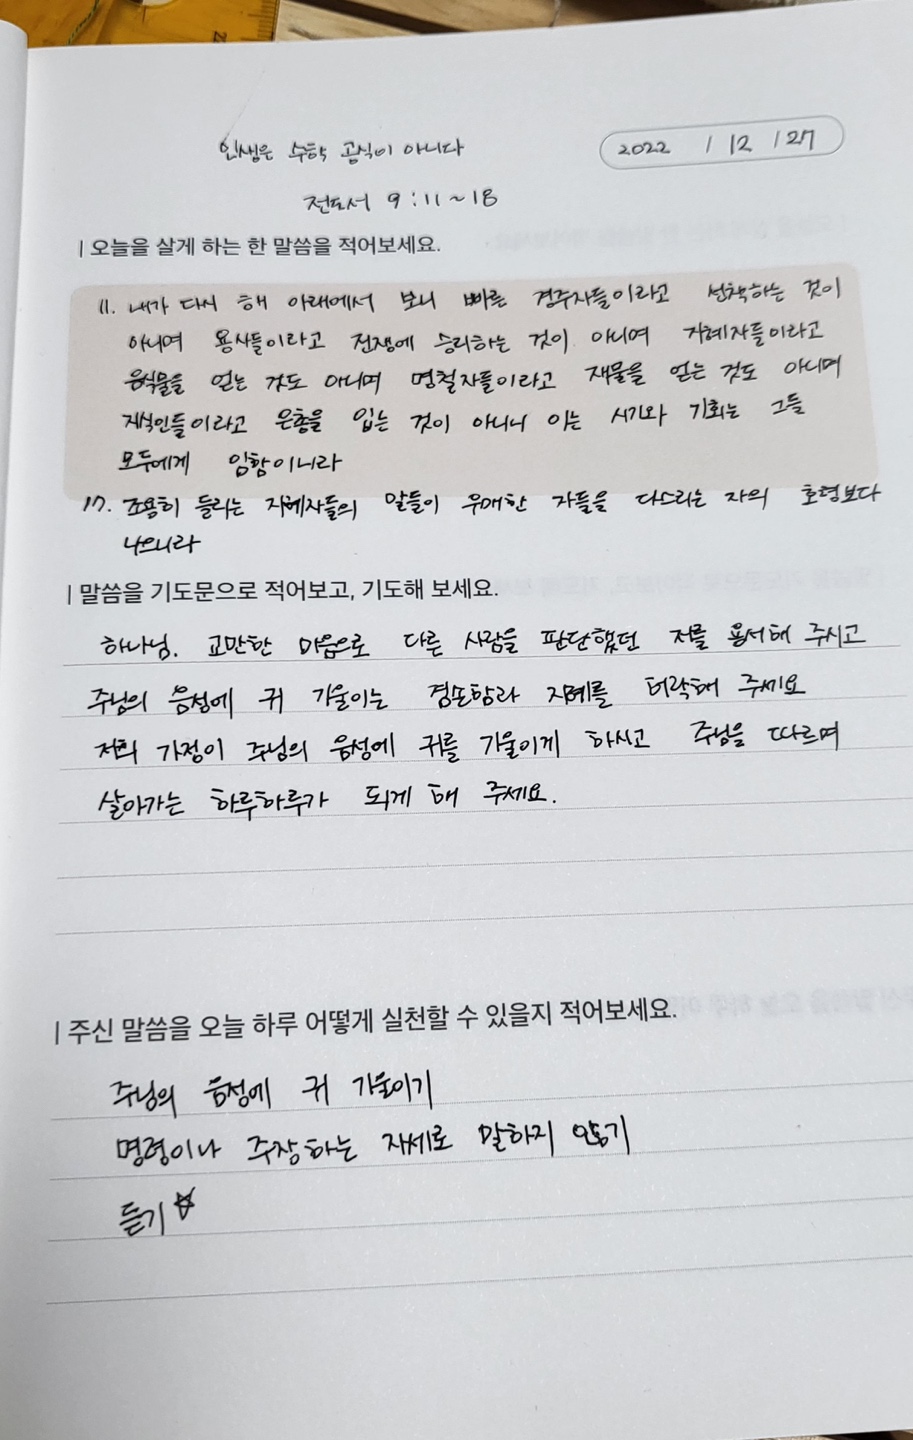 인생은 수학 공식이 아니다
2022 / 12 / 27
전도서 9:11~18
| 오늘을 살게 하는 한 말씀을 적어보세요.
11. 내가 다시 해 아래에서 보니 빠른 경주자들이라고 선착하는 것이
아니며 용사들이라고 전쟁에 승리하는 것이 아니며 지혜자들이라고
음식물을 얻는 것도 아니며 명철자들이라고 재물을 얻는 것도 아니며
지식인들이라고 은총을 입는 것이 아니니 이는 시기와 기회는 그들
모두에게 임함이니라
17. 조용히 들리는 지혜자들의 말들이 우매한 자들을 다스리는 자의 호령보다
나으니라
| 말씀을 기도문으로 적어보고, 기도해 보세요.
하나님. 교만한 마음으로 다른 사람을 판단했던 저를 용서해 주시고
주님의 음성에 귀 기울이는 겸손함과 지혜를 허락해 주세요
저희 가정이 주님의 음성에 귀를 기울이게 하시고 주님을 따르며
살아가는 하루하루가 되게 해 주세요.
| 주신 말씀을 오늘 하루 어떻게 실천할 수 있을지 적어보세요.
주님의 음성에 귀 기울이기
명령이나 주장하는 자세로 말하지 않기
듣기☆